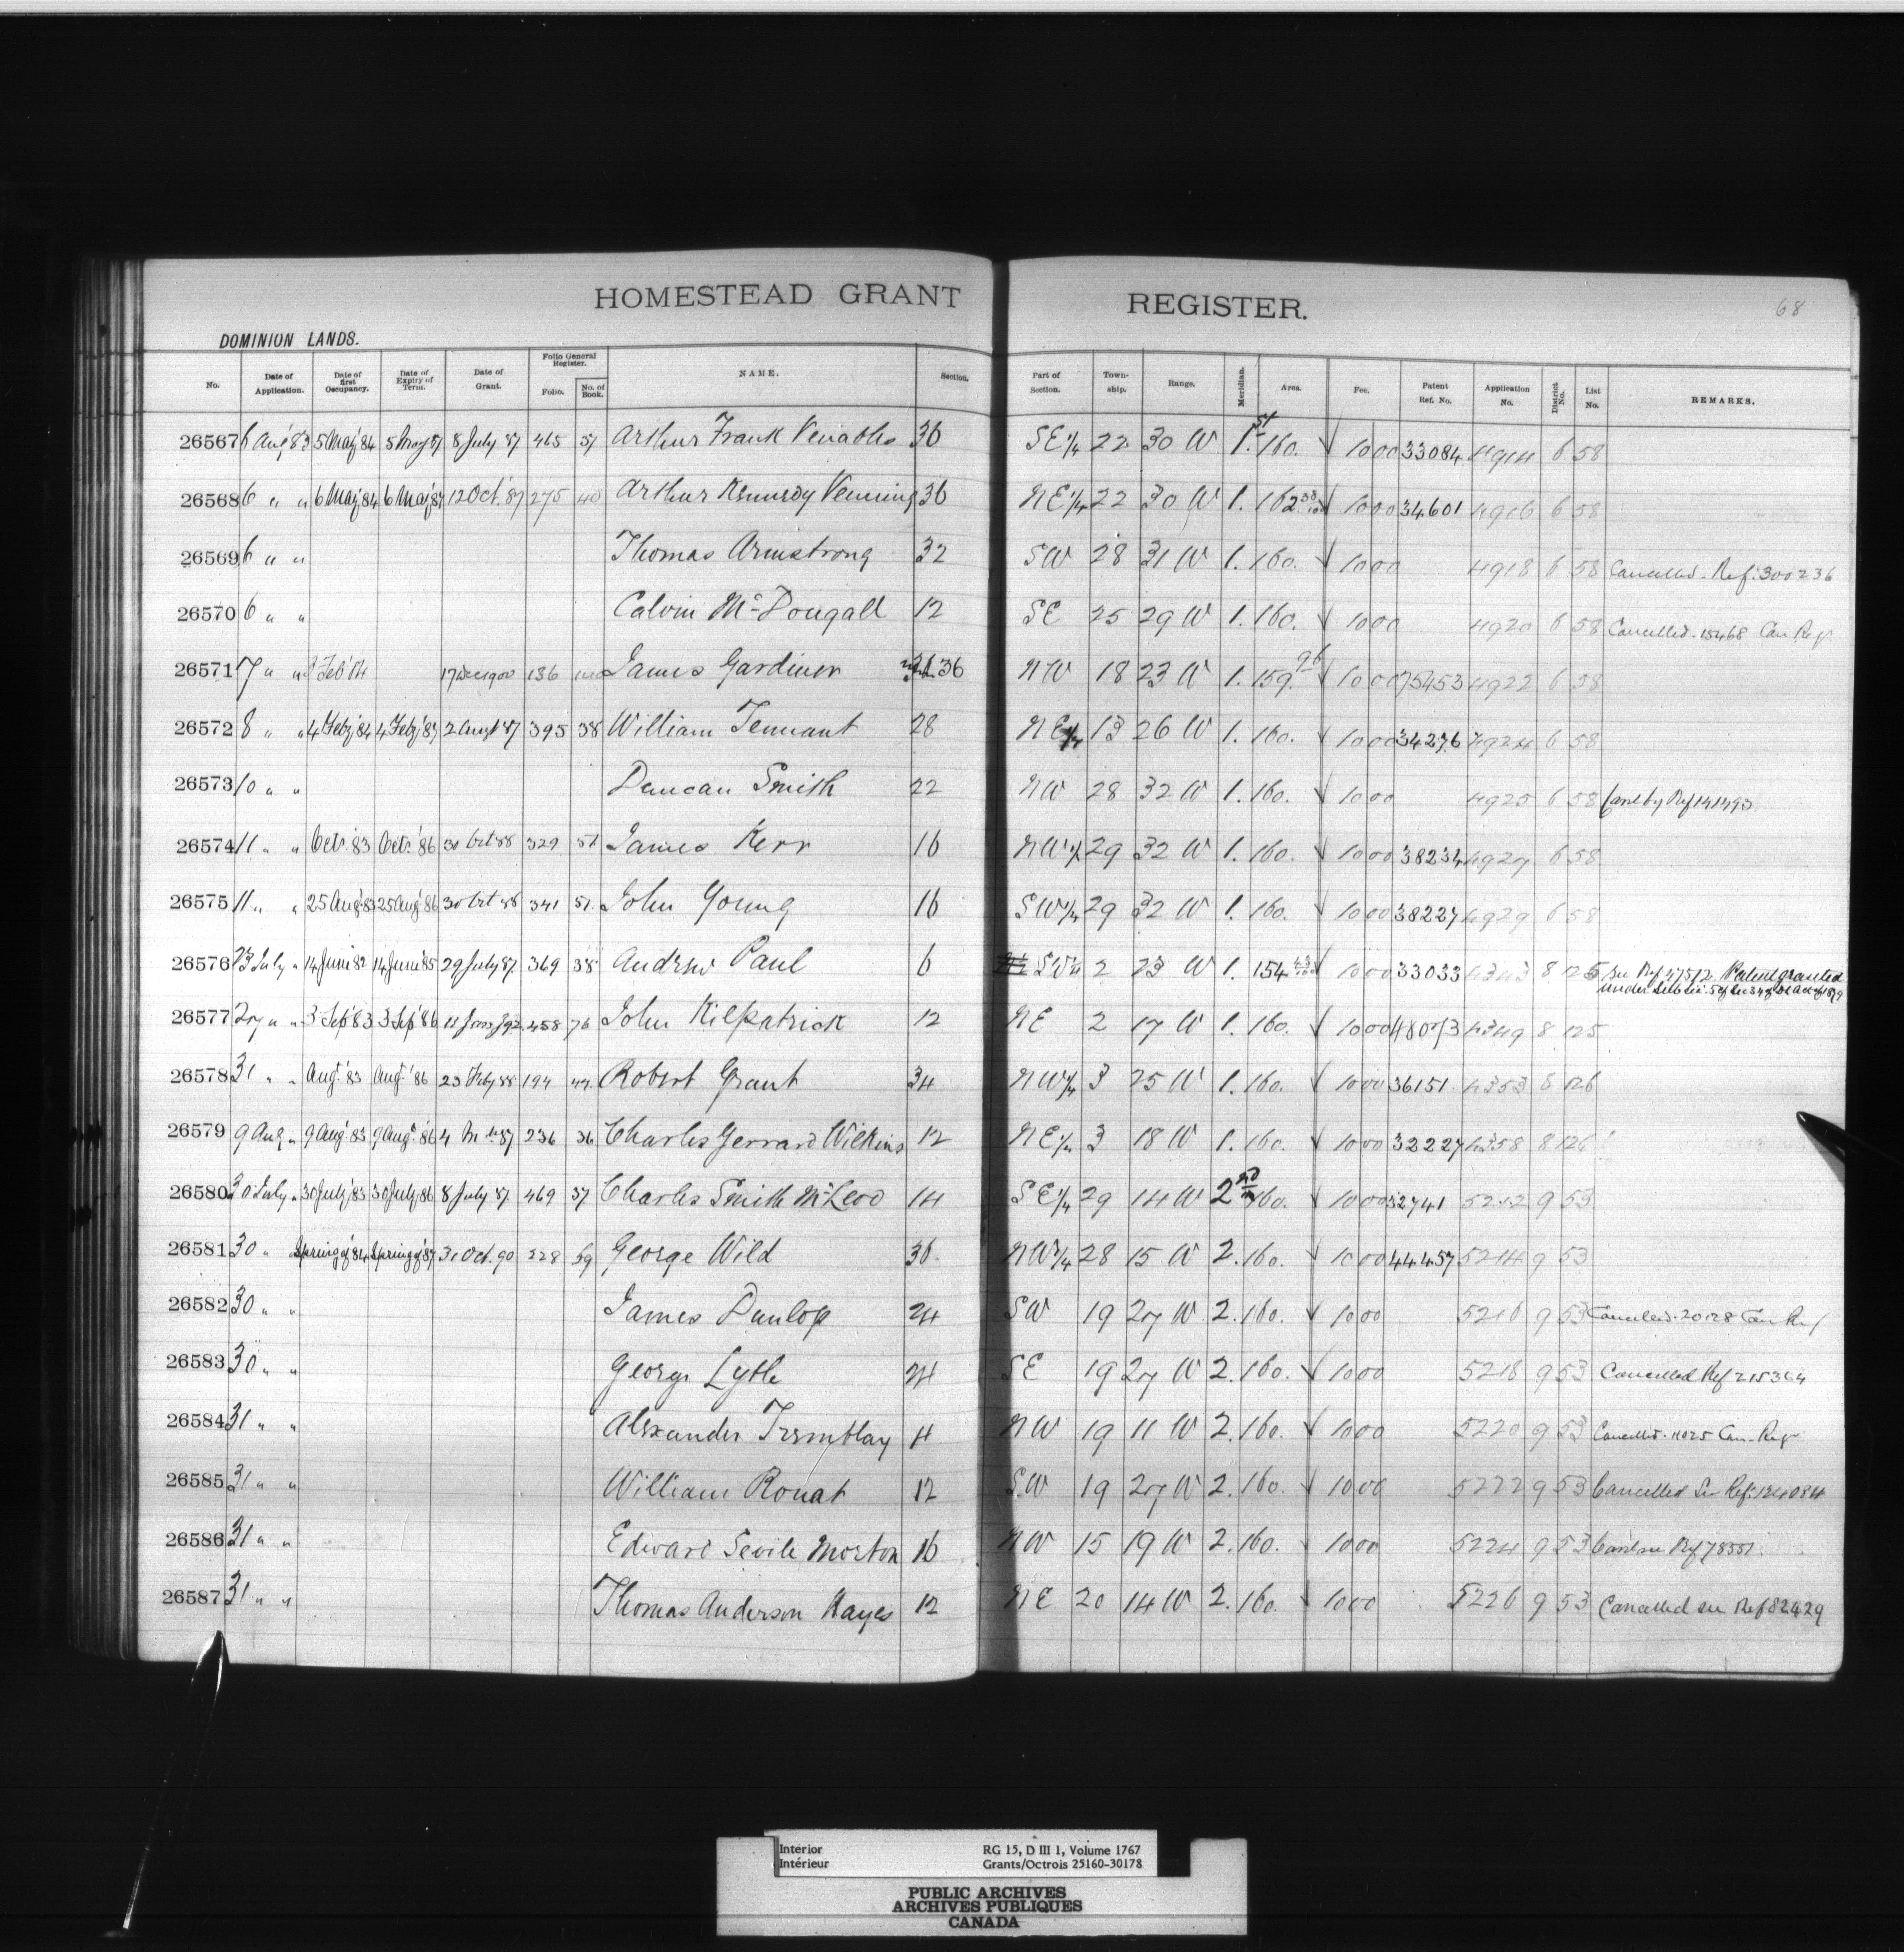 HOMESTEAD GRANT REGISTER.
68
DOMINION LANDS.
No. Date of Application. Date of first Occupancy. Date of Expiry of Term. Date of Grant. Folio General Register. Folio. No. of Book. NAME. Section. Part of Section. Township. Range. Meridian. Area. Fee. Patent Ref. No. Application No. District No. List No. REMARKS.
26567 6 Aug '83 5 May '84 5 May '87 8 July '87 465 37 Arthur Frank Venables 36 SE 1/4 22 30 W 1. 160. √ 10 00 33084 4914 6 58
26568 6 " " 6 May '84 6 May '87 12 Oct. '87 275 40 Arthur Kennedy Venning 36 NE 1/4 22 30 W 1. 162 38/100 √ 10 00 34601 4916 6 58
26569 6 " " Thomas Armstrong 32 SW 28 31 W 1. 160. √ 10 00 4918 6 58 Cancelled. Ref: 300236
26570 6 " " Calvin McDougall 12 SE 25 29 W 1. 160. √ 10 00 4920 6 58 Cancelled. 15468 Can Reg.
26571 7 " " Feb '84 17 Dec 1900 136 James Gardiner 36 NW 18 23 W 1. 159.96 √ 10 00 75453 4922 6 58
26572 8 " " 4 Feby '84 4 Feby '87 2 Augt '87 395 38 William Tennant 28 NE 1/4 13 26 W 1. 160. √ 10 00 34276 4924 6 58
26573 10 " " Duncan Smith 22 NW 28 32 W 1. 160. √ 10 00 4925 6 58 Canc by Ref 141493
26574 11 " " Octr. '83 Octr. '86 30 Oct 88 329 51 James Kerr 16 NW 1/4 29 32 W 1. 160. √ 10 00 38234 4927 6 58
26575 11 " " 25 Aug. '83 25 Aug. '86 30 Oct 88 341 51. John Young 16 SW 1/4 29 32 W 1. 160. √ 10 00 38227 4929 6 58
26576 23 July " 14 June '82 14 June '85 29 July '87 369 38 Andrew Paul 6 SW 1/4 2 23 W 1. 154 43/100 √ 10 00 33033 4343 8 125 See Ref 47512. Patent granted
under Sub sec: 5 of Sec 34 of DL Act of 1879
26577 27 " " 3 Sep '83 3 Sep '86 458 76 John Kilpatrick 12 NE 2 17 W 1. 160. √ 10 00 48073 4349 8 125
26578 31 " " Augt. '83 Augt. '86 23 Feby 88 194 44 Robert Grant 34 NW 1/4 3 25 W 1. 160. √ 10 00 36151 4353 8 126
26579 9 Aug " 9 Aug. '83 9 Aug. '86 4 87 236 36 Charles Gerrard Wilkins 12 NE 1/4 3 18 W 1. 160. √ 10 00 32227 4358 8 126
26580 30 July " 30 July '83 30 July '86 8 July '87. 469 37 Charles Smith McLeod 14 SE 1/4 29 14 W 2 160. √ 10 00 32741 5212 9 53
26581 30 " Spring of '84 Spring of '87 31 Oct. 90 228 69 George Wild 36. NW 1/4 28 15 W 2. 160. √ 10 00 44457 5214 9 53
26582 30 " " James Dunlop 24 SW 19 27 W 2. 160. √ 10 00 5216 9 53 Cancelled. 20128 Can Ref
26583 30 " " George Lytle 24 SE 19 27 W 2. 160. √ 10 00 5218 9 53 Cancelled Ref 215364
26584 31 " " Alexander Tremblay 4 NW 19 11 W 2. 160. √ 10 00 5220 9 53 Cancelled. 11025 Can. Reg.
26585 31 " " William Rouat 12 S.W 19 27 W 2. 160. √ 10 00 5222 9 53 Cancelled See Ref: 124084
26586 31 " " Edward Sevile Morton 16 NW 15 19 W 2. 160. √ 10 00 5224 9 53 Canc see Ref 78551.
26587 31 " " Thomas Anderson Hayes 12 NE 20 14 W 2. 160. √ 10 00 5226 9 53 Cancelled see Ref 82429
Interior RG 15, D III 1, Volume 1767
Intérieur Grants/Octrois 25160-30178
PUBLIC ARCHIVES
ARCHIVES PUBLIQUES
CANADA